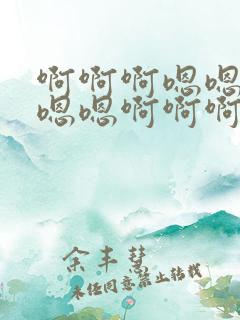 啊啊啊嗯嗯
嗯嗯啊啊啊
余丰慧
未经同意禁止转载